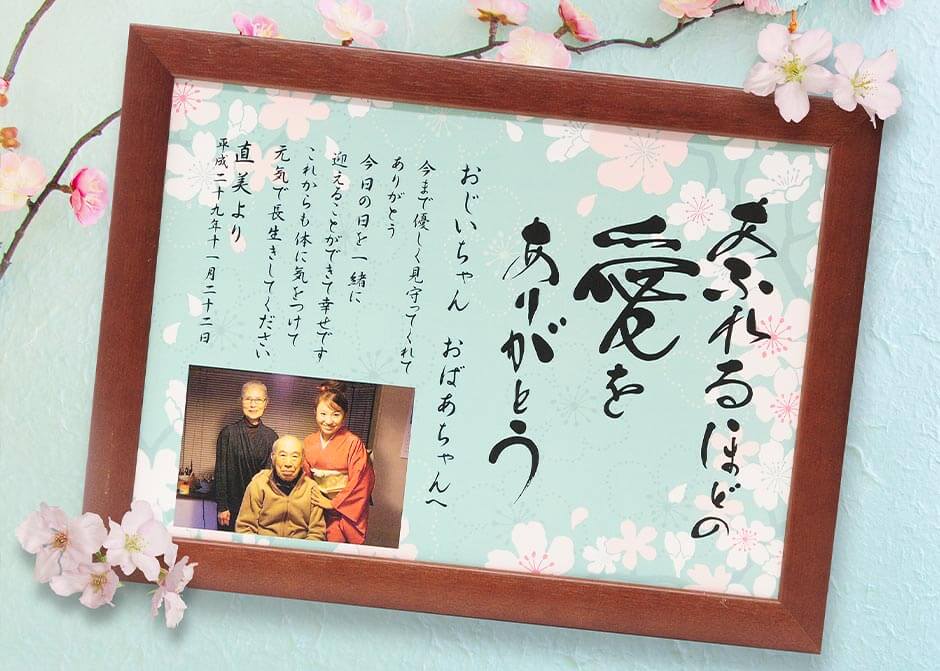 あふれるほどの
愛を
ありがとう
おじいちゃん　おばあちゃんへ
今まで優しく見守ってくれて
ありがとう
今日の日を一緒に
迎えることができて幸せです
これからも体に気をつけて
元気で長生きしてください
直美より
平成二十九年十一月二十二日